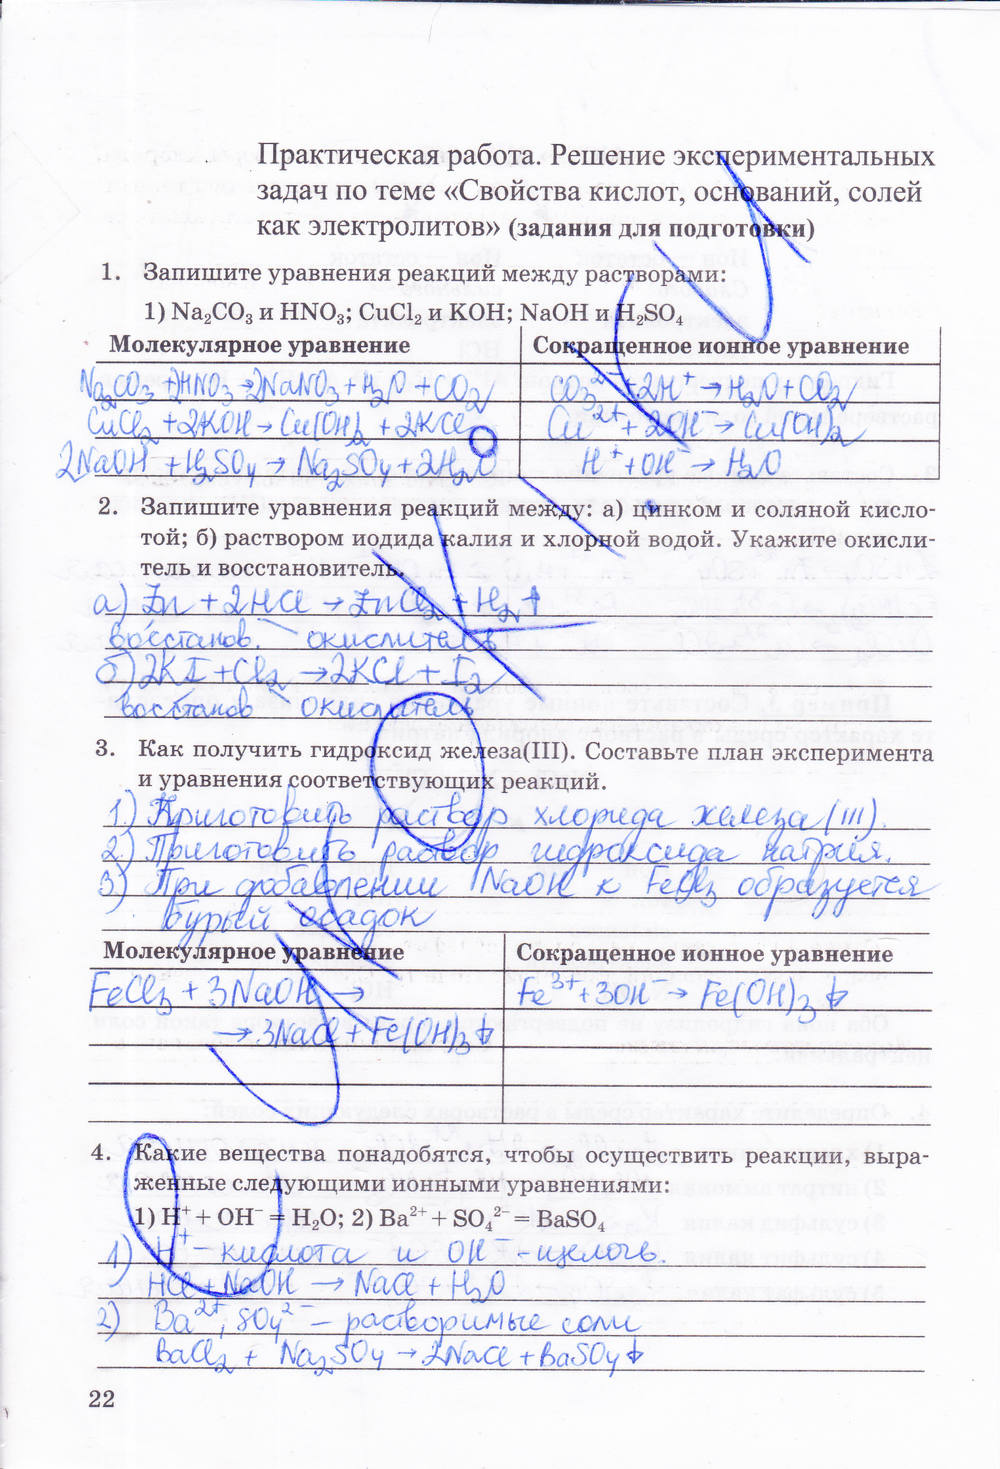 Практическая работа. Решение экспериментальных
задач по теме «Свойства кислот, оснований, солей
как электролитов» (задания для подготовки)
1. Запишите уравнения реакций между растворами:
1) Na₂CO₃ и HNO₃; CuCl₂ и KOH; NaOH и H₂SO₄
Молекулярное уравнение Сокращенное ионное уравнение
Na₂CO₃ + 2HNO₃ → 2NaNO₃ + H₂O + CO₂ CO₃²⁻ + 2H⁺ → H₂O + CO₂
CuCl₂ + 2KOH → Cu(OH)₂ + 2KCl Cu²⁺ + 2OH⁻ → Cu(OH)₂
2NaOH + H₂SO₄ → Na₂SO₄ + 2H₂O H⁺ + OH⁻ → H₂O
2. Запишите уравнения реакций между: а) цинком и соляной кисло-
той; б) раствором иодида калия и хлорной водой. Укажите окисли-
тель и восстановитель.
а) Zn + 2HCl → ZnCl₂ + H₂↑
восстанов. окислитель
б) 2KI + Cl₂ → 2KCl + I₂
восстанов окислитель
3. Как получить гидроксид железа(III). Составьте план эксперимента
и уравнения соответствующих реакций.
1) Приготовить раствор хлорида железа (III).
2) Приготовить раствор гидроксида натрия.
3) При добавлении NaOH к FeCl₃ образуется
бурый осадок
Молекулярное уравнение Сокращенное ионное уравнение
FeCl₃ + 3NaOH → Fe³⁺ + 3OH⁻ → Fe(OH)₃↓
→ 3NaCl + Fe(OH)₃↓
4. Какие вещества понадобятся, чтобы осуществить реакции, выра-
женные следующими ионными уравнениями:
1) H⁺ + OH⁻ = H₂O; 2) Ba²⁺ + SO₄²⁻ = BaSO₄
1) H⁺ – кислота и OH⁻ – щелочь.
HCl + NaOH → NaCl + H₂O
2) Ba²⁺, SO₄²⁻ – растворимые соли
BaCl₂ + Na₂SO₄ → 2NaCl + BaSO₄↓
22